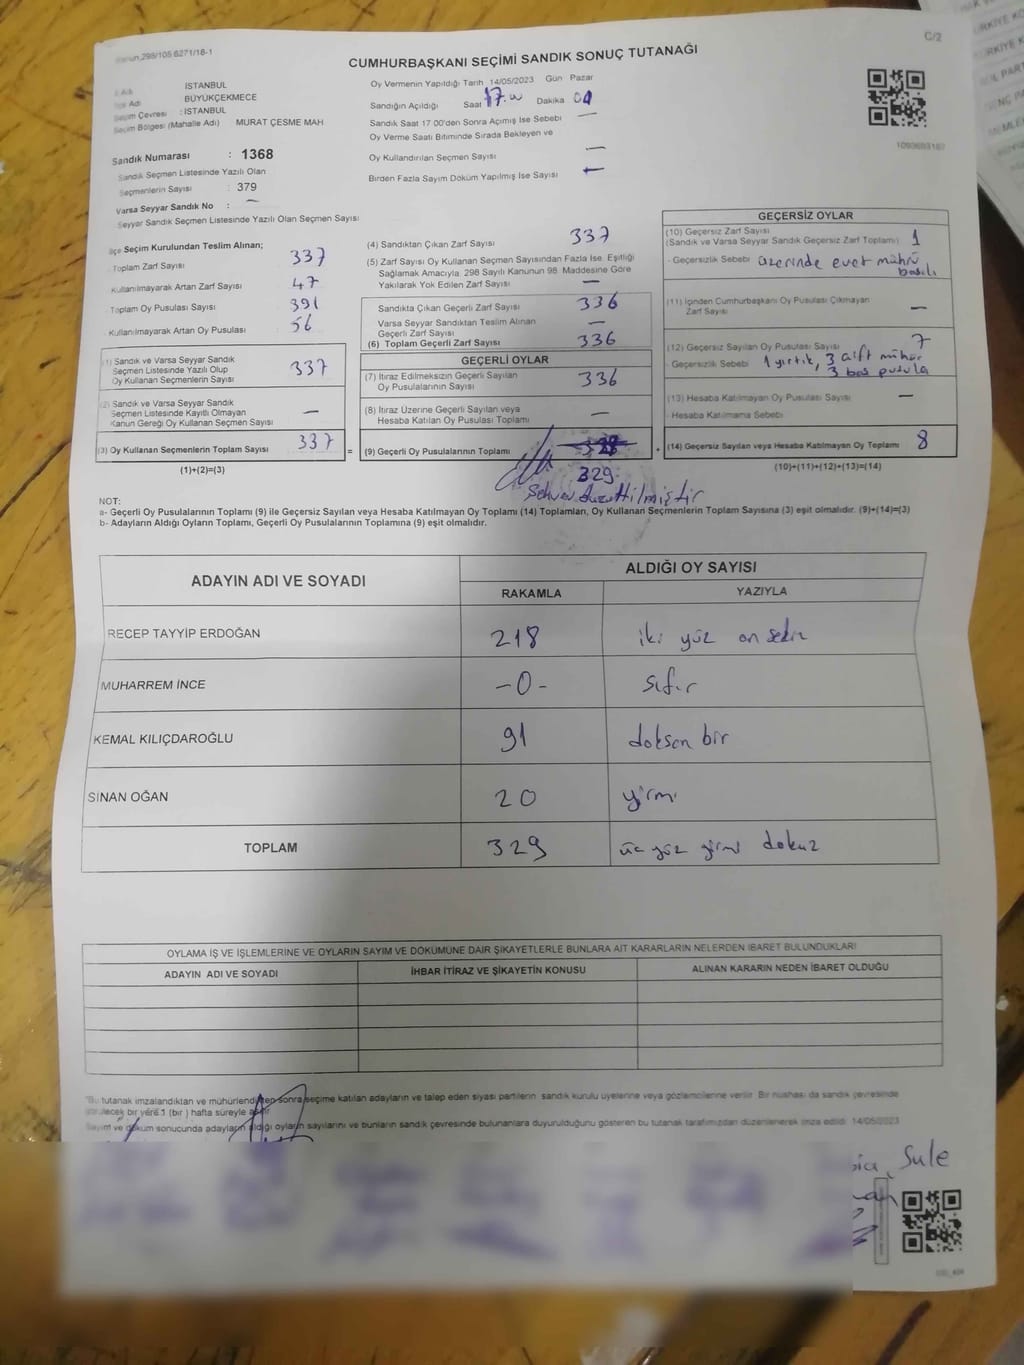 Kanun,298/105 6271/18-1
C/2
CUMHURBAŞKANI SEÇİMİ SANDIK SONUÇ TUTANAĞI
İl Adı : İSTANBUL
İlçe Adı BÜYÜKÇEKMECE
Seçim Çevresi : İSTANBUL
Seçim Bölgesi (Mahalle Adı) MURAT ÇEŞME MAH
Sandık Numarası : 1368
Sandık Seçmen Listesinde Yazılı Olan
Seçmenlerin Sayısı : 379
Varsa Seyyar Sandık No : —
Seyyar Sandık Seçmen Listesinde Yazılı Olan Seçmen Sayısı
Oy Vermenin Yapıldığı Tarih 14/05/2023 Gün Pazar
Sandığın Açıldığı Saat 17. Dakika
Sandık Saat 17 00'den Sonra Açımış İse Sebebi —
Oy Verme Saati Bitiminde Sırada Bekleyen ve
Oy Kullandırılan Seçmen Sayısı —
Birden Fazla Sayım Döküm Yapılmış İse Sayısı —
1093693187
İlçe Seçim Kurulundan Teslim Alınan;
Toplam Zarf Sayısı 337
Kullanılmayarak Artan Zarf Sayısı 47
Toplam Oy Pusulası Sayısı 391
Kullanılmayarak Artan Oy Pusulası 56
(1) Sandık ve Varsa Seyyar Sandık
Seçmen Listesinde Yazılı Olup
Oy Kullanan Seçmenlerin Sayısı 337
(2) Sandık ve Varsa Seyyar Sandık
Seçmen Listesinde Kayıtlı Olmayan
Kanun Gereği Oy Kullanan Seçmen Sayısı —
(3) Oy Kullanan Seçmenlerin Toplam Sayısı 337
(1)+(2)=(3)
(4) Sandıktan Çıkan Zarf Sayısı 337
(5) Zarf Sayısı Oy Kullanan Seçmen Sayısından Fazla İse. Eşitliği
Sağlamak Amacıyla. 298 Sayılı Kanunun 98. Maddesine Göre
Yakılarak Yok Edilen Zarf Sayısı —
Sandıkta Çıkan Geçerli Zarf Sayısı 336
Varsa Seyyar Sandıktan Teslim Alınan
Geçerli Zarf Sayısı —
(6) Toplam Geçerli Zarf Sayısı 336
GEÇERLİ OYLAR
(7) İtiraz Edilmeksizin Geçerli Sayılan
Oy Pusulalarının Sayısı 336
(8) İtiraz Üzerine Geçerli Sayılan veya
Hesaba Katılan Oy Pusulası Toplamı —
= (9) Geçerli Oy Pusulalarının Toplamı
329
Sehven düzeltilmiştir
GEÇERSİZ OYLAR
(10) Geçersiz Zarf Sayısı
(Sandık ve Varsa Seyyar Sandık Geçersiz Zarf Toplamı) 1
- Geçersizlik Sebebi üzerinde evet mührü
basılı
(11) İçinden Cumhurbaşkanı Oy Pusulası Çıkmayan
Zarf Sayısı —
(12) Geçersiz Sayılan Oy Pusulası Sayısı 7
- Geçersizlik Sebebi 1 yırtık, 3 çift mühür
3 boş pusula
(13) Hesaba Katılmayan Oy Pusulası Sayısı —
- Hesaba Katılmama Sebebi
+ (14) Geçersiz Sayılan veya Hesaba Katılmayan Oy Toplamı 8
(10)+(11)+(12)+(13)=(14)
NOT:
a- Geçerli Oy Pusulalarının Toplamı (9) ile Geçersiz Sayılan veya Hesaba Katılmayan Oy Toplamı (14) Toplamları, Oy Kullanan Seçmenlerin Toplam Sayısına (3) eşit olmalıdır. (9)+(14)=(3)
b- Adayların Aldığı Oyların Toplamı, Geçerli Oy Pusulalarının Toplamına (9) eşit olmalıdır.
ADAYIN ADI VE SOYADI
ALDIĞI OY SAYISI
RAKAMLA YAZIYLA
RECEP TAYYİP ERDOĞAN 218 iki yüz on sekiz
MUHARREM İNCE -0- sıfır
KEMAL KILIÇDAROĞLU 91 doksan bir
SİNAN OĞAN 20 yirmi
TOPLAM 329 üç yüz yirmi dokuz
OYLAMA İŞ VE İŞLEMLERİNE VE OYLARIN SAYIM VE DÖKÜMÜNE DAİR ŞİKAYETLERLE BUNLARA AİT KARARLARIN NELERDEN İBARET BULUNDUKLARI
ADAYIN ADI VE SOYADI İHBAR İTİRAZ VE ŞİKAYETİN KONUSU ALINAN KARARIN NEDEN İBARET OLDUĞU
"Bu tutanak imzalandıktan ve mühürlendikten sonra seçime katılan adayların ve talep eden siyasi partilerin sandık kurulu üyelerine veya gözlemcilerine verilir. Bir nüshası da sandık çevresinde
görülecek bir yere 1 (bir ) hafta süreyle asılır
Sayım ve döküm sonucunda adayların aldığı oyların sayılarını ve bunların sandık çevresinde bulunanlara duyurulduğunu gösteren bu tutanak tarafımızdan düzenlenerek imza edildi. 14/05/2023
Şule